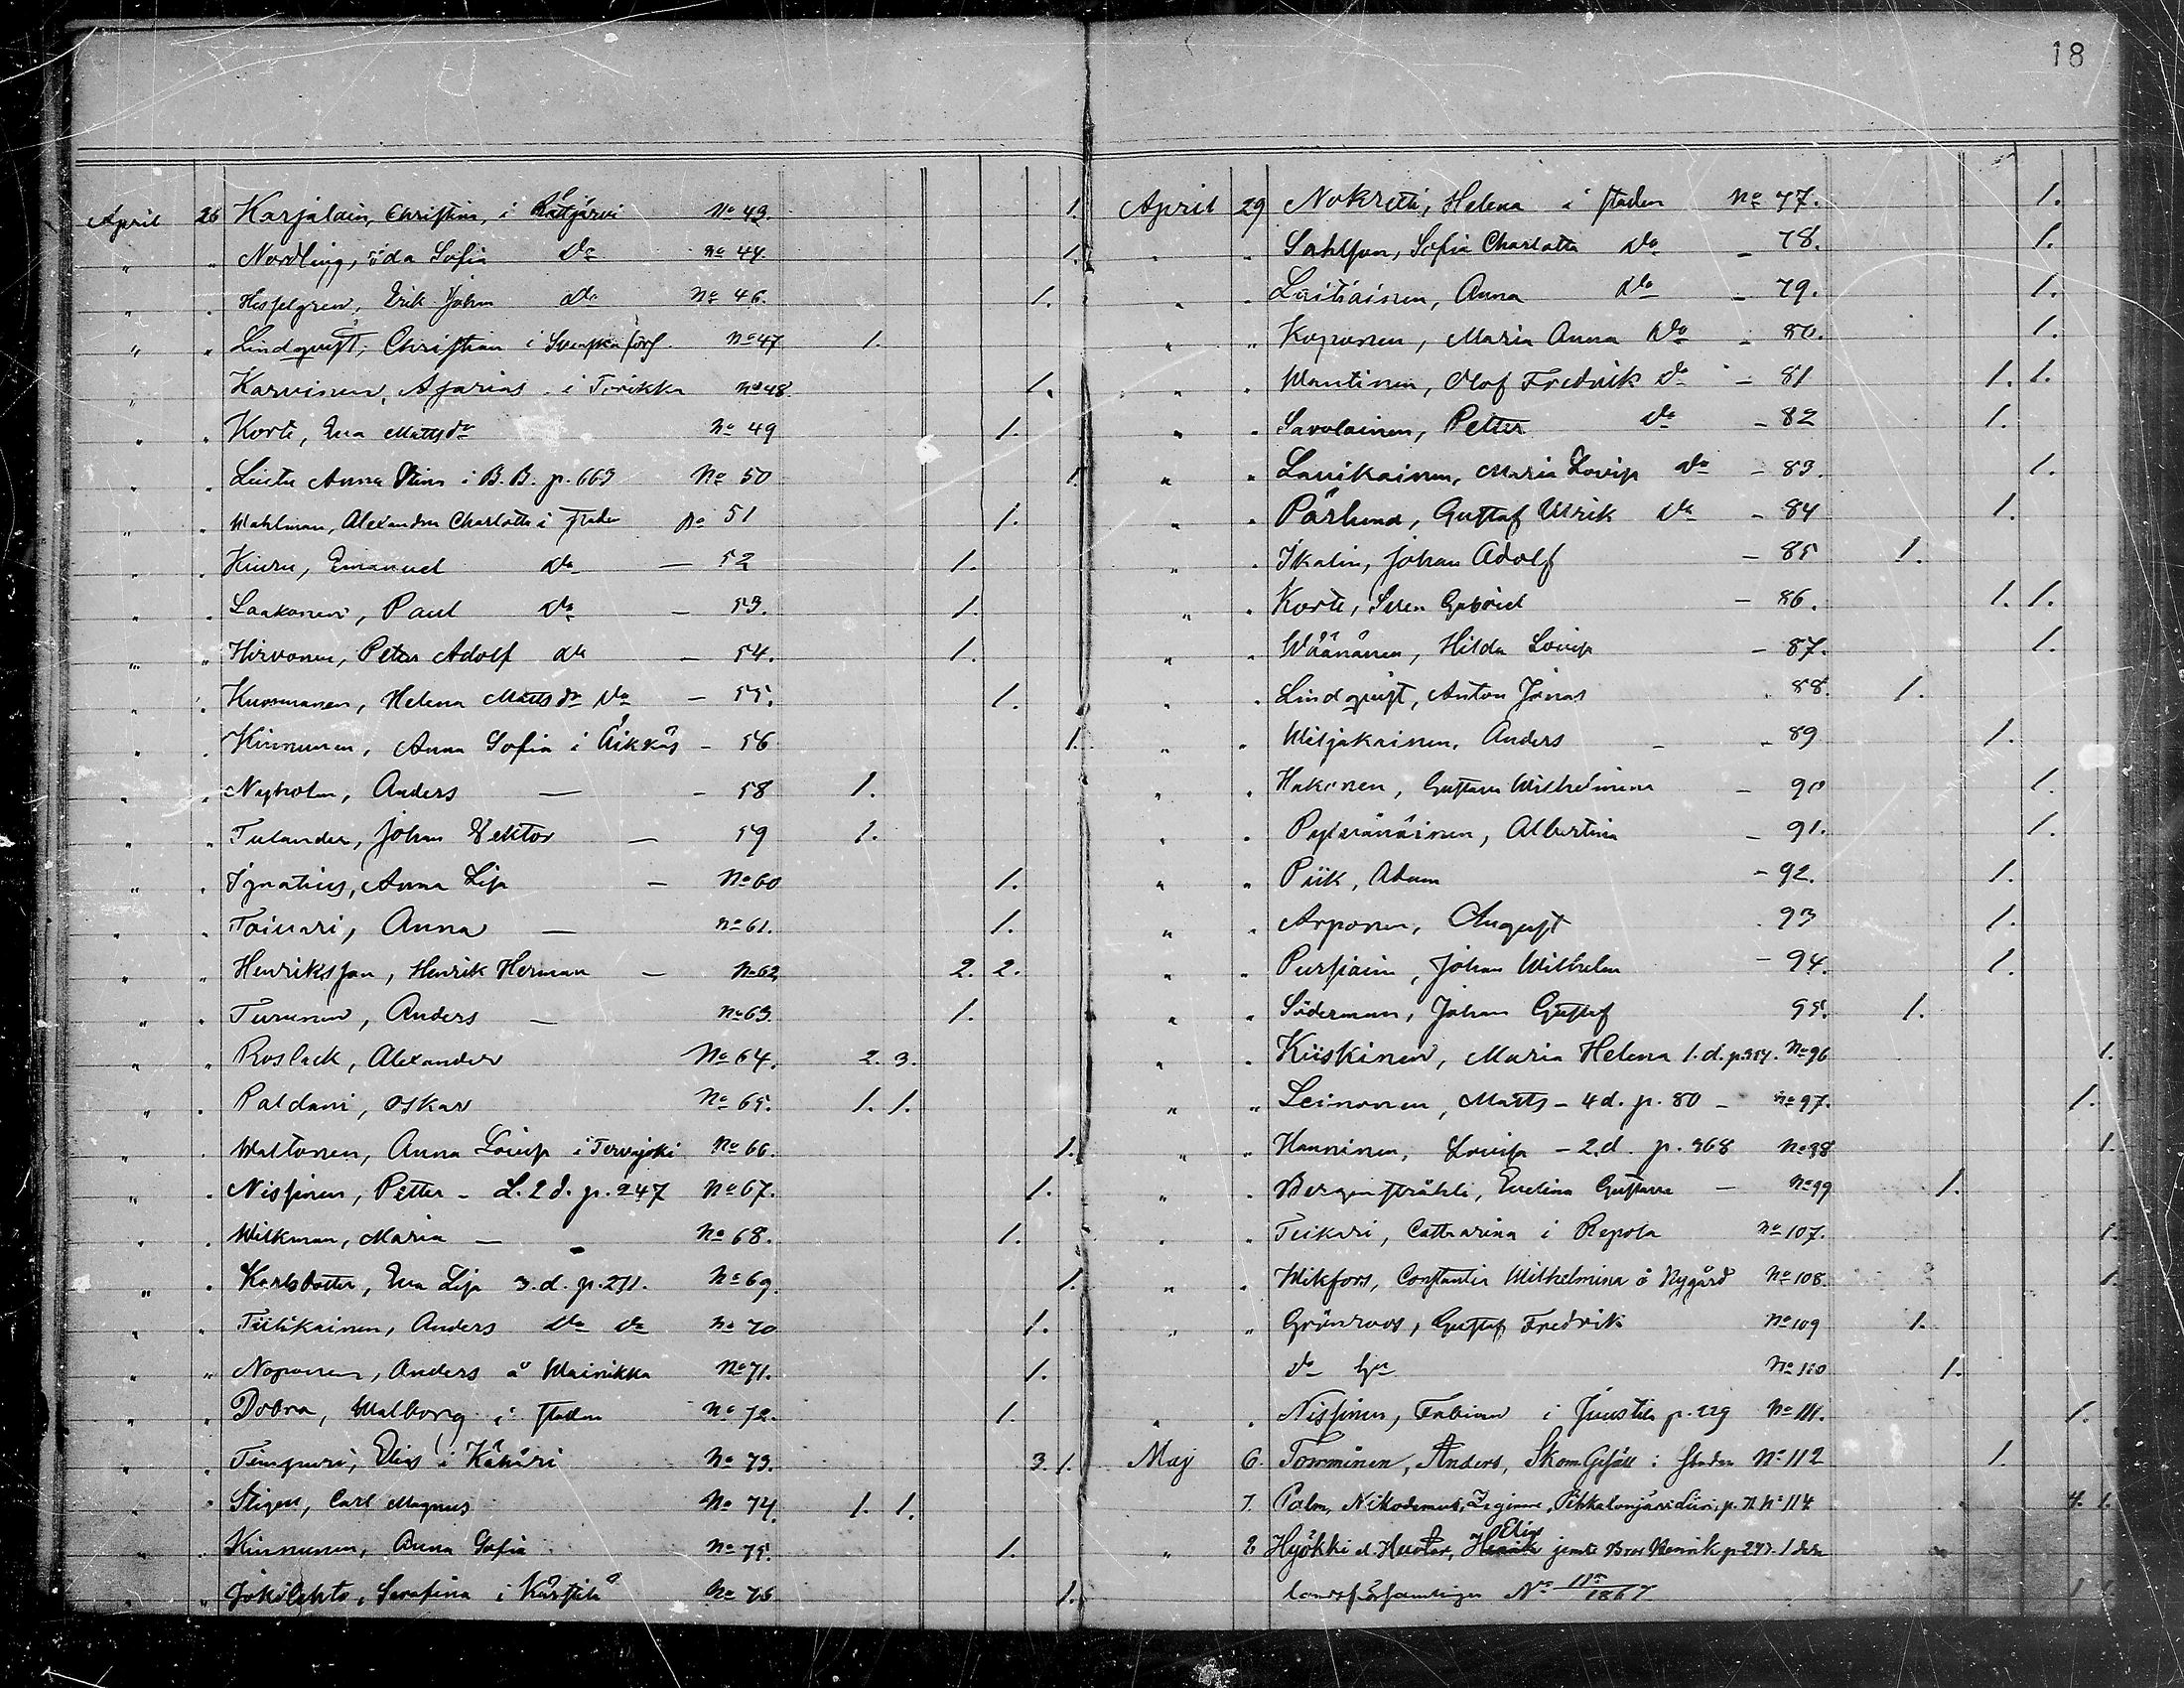 18
April 26 Karjalain, Christina, i Rättjärvi No 43. 1.
" " Nordling, Ida Sofia do no 44. 1.
" " Hesselgren, Erik Johan do No 46. 1.
" " Lindqvist, Christian i Svenska förs. No 47 1.
" Karvinen, Asarias i Terikka No 48. 1.
" " Korte, Eva Mattsdr No 49 1.
" " Liutu Anna Stina i B.B. p. 663 No 50 1.
" " Wahlman, Alexandra Charlotta i staden No 51 1.
" " Kiuru, Emanuel do — 52 1.
" " Laakonen, Paul do — 53. 1.
" " Hirvonen, Petter Adolf do — 54. 1.
" " Kummanen, Helena Mattsdr do — 55. 1.
" " Kinnunen, Anna Sofia i Äikkäs — 56 1.
" " Nyholm, Anders — 58 1.
" " Tulander, Johan Vektor — 59 1.
" " Ignatius, Anna Lisa — No 60 1.
" " Toivari, Anna — no 61. 1.
" " Henriksson, Henrik Herman — No 62 2. 2.
" " Turunen, Anders — no 63. 1.
" " Roslack, Alexander No 64. 2. 3.
" " Paldani, Oskar No 65. 1. 1.
" " Waltonen, Anna Lovisa i Tervajoki No 66. 1.
" " Nissinen, Petter - L. 2 d. p. 247 No 67. 1.
" " Wilkman, Maria — No 68. 1.
" " Karlsdotter, Eva Lisa 3. d. p. 211. No 69. 1.
" " Tiilikainen, Anders do do No 70 1.
" " Noponen, Anders å Wainikka No 71. 1.
" " Dobra, Walborg i staden No 72. 1.
" " Timpuri, Elias i Kähäri No 73. 3. 1.
" Stigen, Carl Magnus No 74. 1. 1.
" " Kinnunen, Anna Sofia No 75. 1.
" " Jokilehto, Serafina i Kärstilä No 76 1.
April 29 Nokreti, Helena i staden No 77. 1.
" " Sahlson, Sofia Charlotta do — 78. 1.
" " Laitiainen, Anna do — 79. 1.
" " Koponen, Maria Anna do — 80. 1.
" " Wantinen, Olof Fredrik do — 81 1. 1.
" " Savolainen, Petter do — 82 1.
" " Lauikainen, Maria Lovisa do — 83. 1.
" " Pärlund, Gustaf Ulrik do — 84 1.
" " Ikalin, Johan Adolf — 85 1.
" " Korte, Sven Gabriel — 86. 1. 1.
" " Wäänänen, Hilda Lovisa — 87. 1.
" " Lindqvist, Anton Jonas 88. 1.
" " Wiljakainen, Anders — 89 1.
" " Hakonen, Gustava Wilhelmina — 90 1.
" " Pylvänäinen, Albertina — 91. 1.
" " Piik, Adam — 92. 1.
" " Arponen, August 93 1.
" " Pursiain, Johan Wilhelm — 94. 1.
" " Söderman, Johan Gustaf 95. 1.
" " Kiiskinen, Maria Helena 1. d. p. 354. No 96 1.
" " Leinonen, Matts - 4 d. p. 80 — no 97. 1.
" " Hanninen, Lovisa — 2. d. p. 368 No 98 1.
" " Bergenstråhle, Evelina Gustava — No 99 1.
" " Teikari, Catharina i Repola No 107. 1.
" " Wikfors, Constantia Wilhelmina å Nygård No 108. 1.
" " Grönroos, Gustaf Fredrik No 109 1.
do No 110 1.
" " Nissinen, Fabian i Juustila p. 229 No 111. 1.
Maj 6. Tomminen, Anders, Skom. Gesäll i staden No 112 1.
7. Palm, Nikodemus, p. 71 No 114 4. 1.
" 8 Hyökki el. Huotar, Elias jemte Bror Henrik p 297. 1 del
landsförsamlingen No 115/1867 1 1